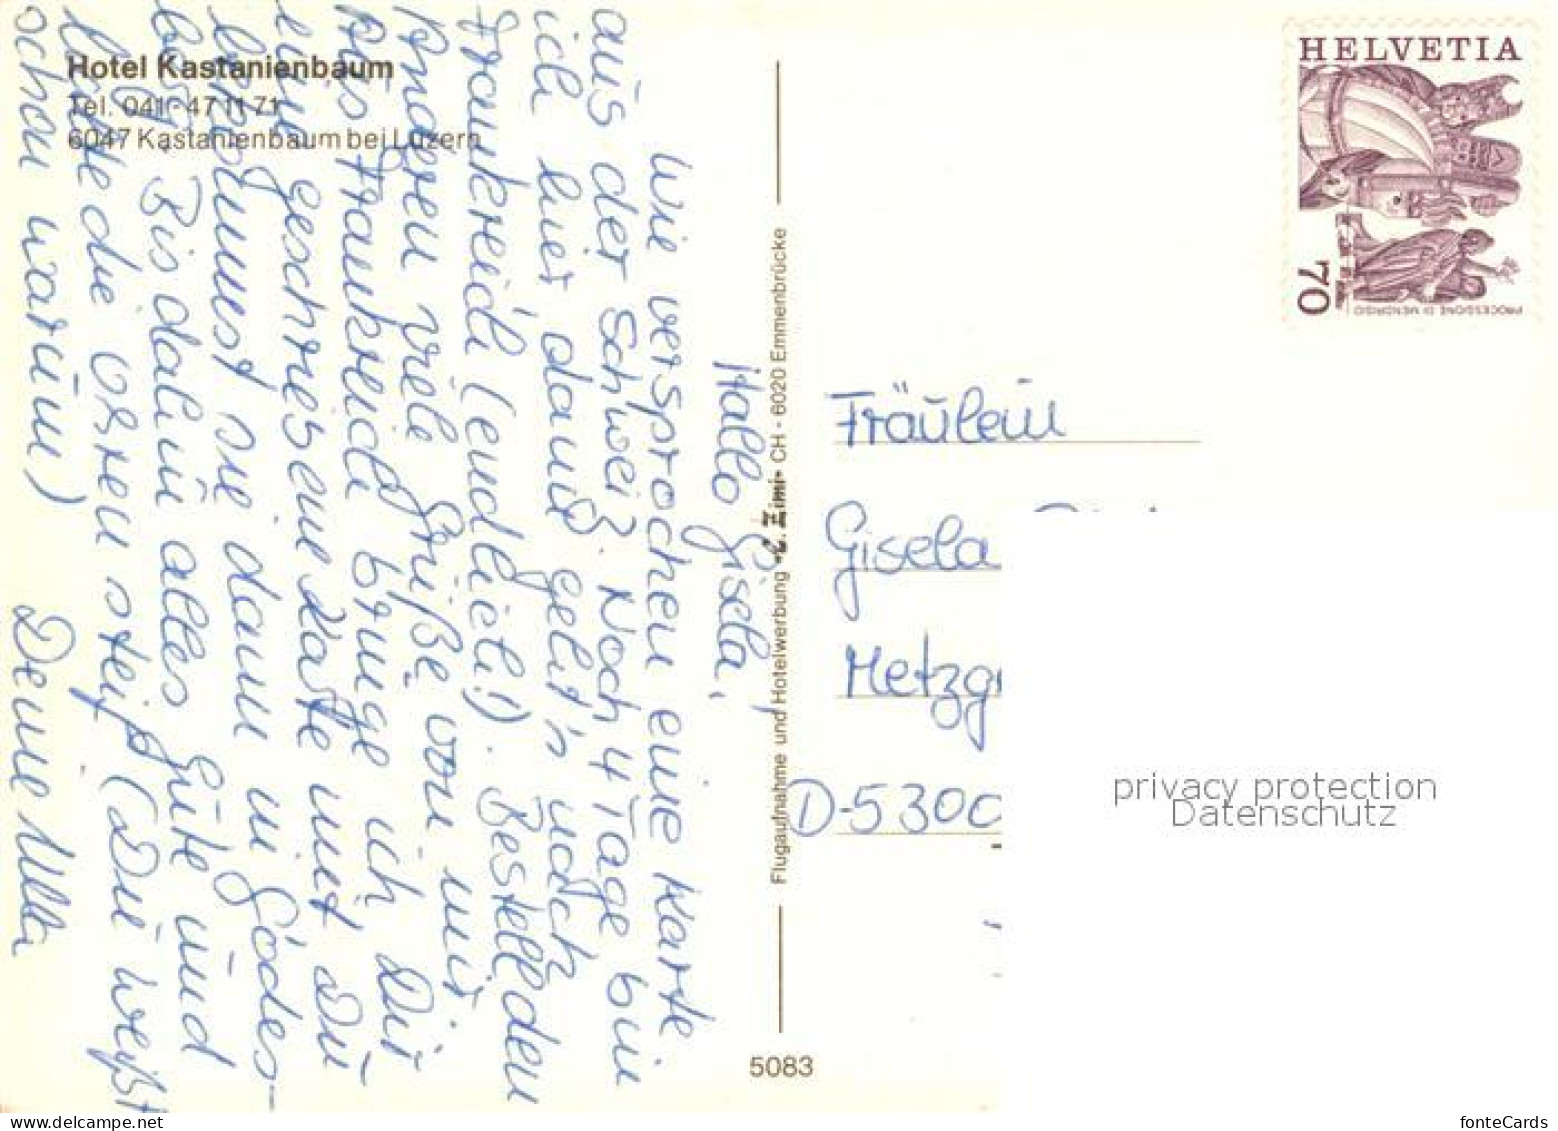 Hotel Kastanienbaum
Tel. 041 - 47 11 71
6047 Kastanienbaum bei Luzern
Hallo Gisela,
wie versprochen eine Karte
aus der Schweiz. Noch 4 Tage bin
ich hier dann geht's nach
Frankreich (endlich!). Bestell den
Anderen viele Grüße von mir.
Aus Frankreich bringe ich Dir
eine geschriebene Karte mit Du
bekommst sie dann in Godes-
berg. Bis dahin alles Gute und
halte die Ohren steif (Du weißt
schon warum)
Deine Ulla
Flugaufnahme und Hotelwerbung C. Zimi CH - 6020 Emmenbrücke
5083
HELVETIA
70
PROCESSIONE DI MENDRISIO
Fräulein
Gisela
Metzg
D-5300
privacy protection
Datenschutz
www.delcampe.net
fonteCards